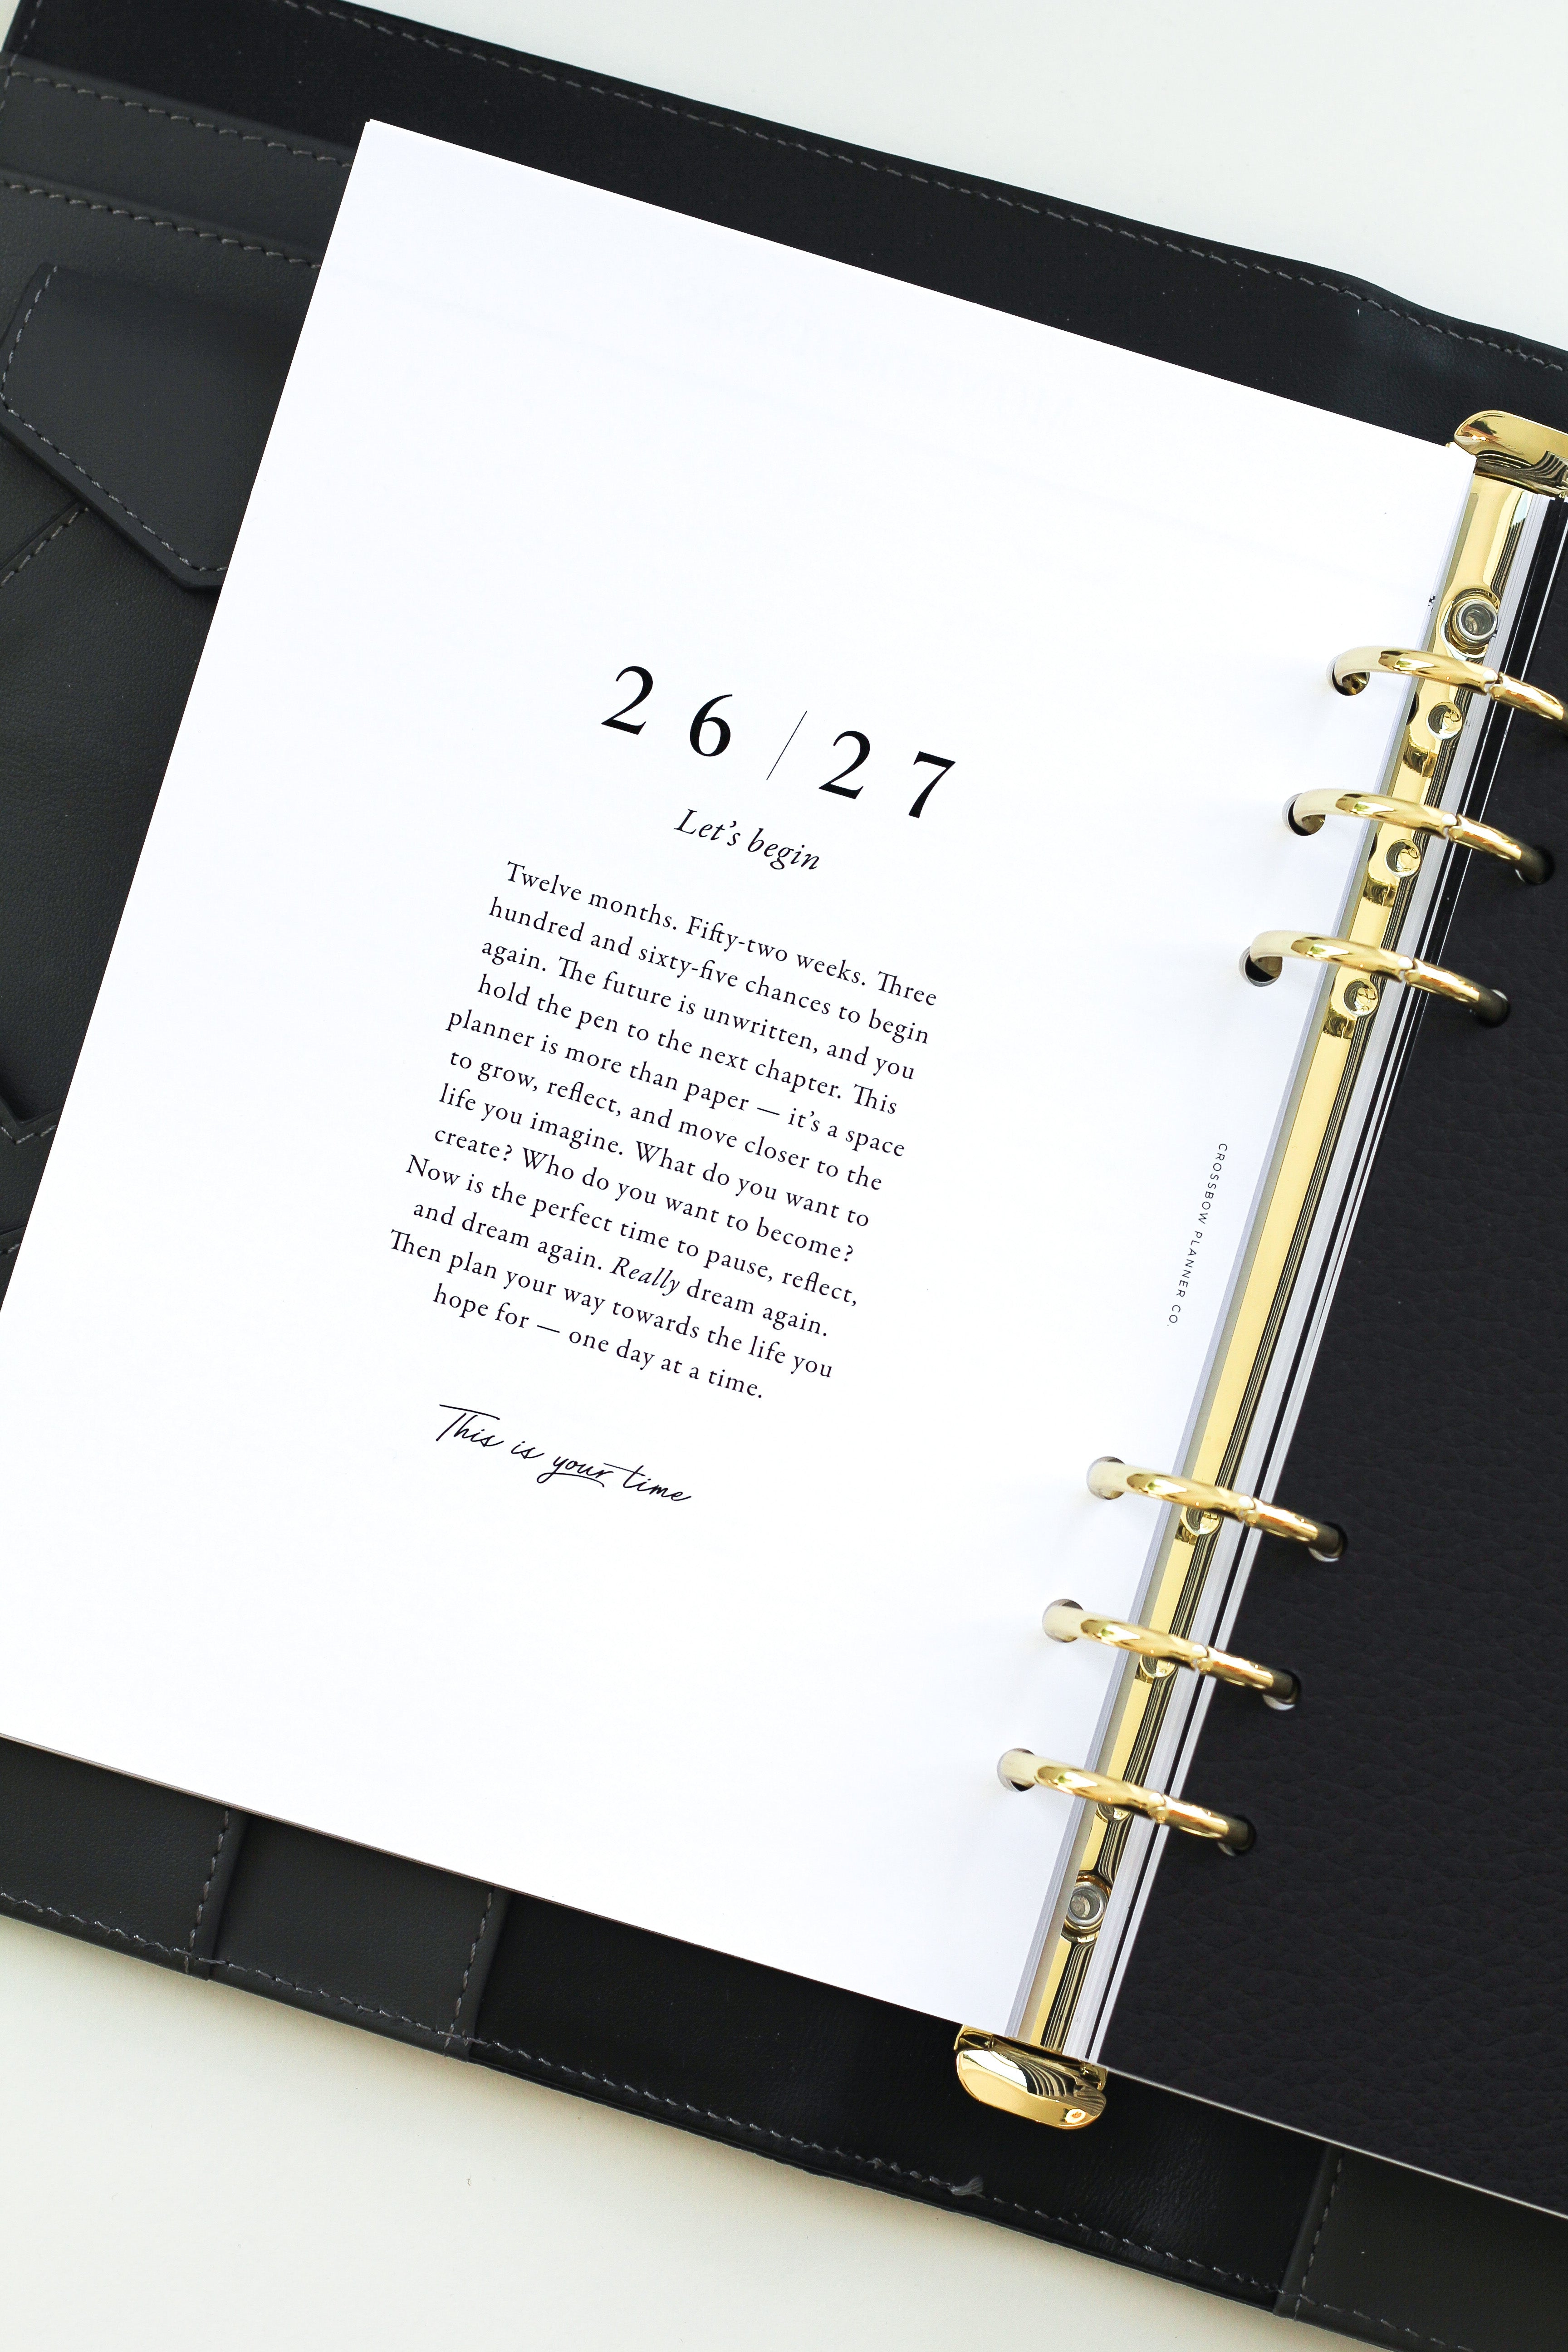 26/27
Let's begin
Twelve months. Fifty-two weeks. Three
hundred and sixty-five chances to begin
again. The future is unwritten, and you
hold the pen to the next chapter. This
planner is more than paper — it's a space
to grow, reflect, and move closer to the
life you imagine. What do you want to
create? Who do you want to become?
Now is the perfect time to pause, reflect,
and dream again. Really dream again.
Then plan your way towards the life you
hope for — one day at a time.
This is your time
CROSSBOW PLANNER CO.